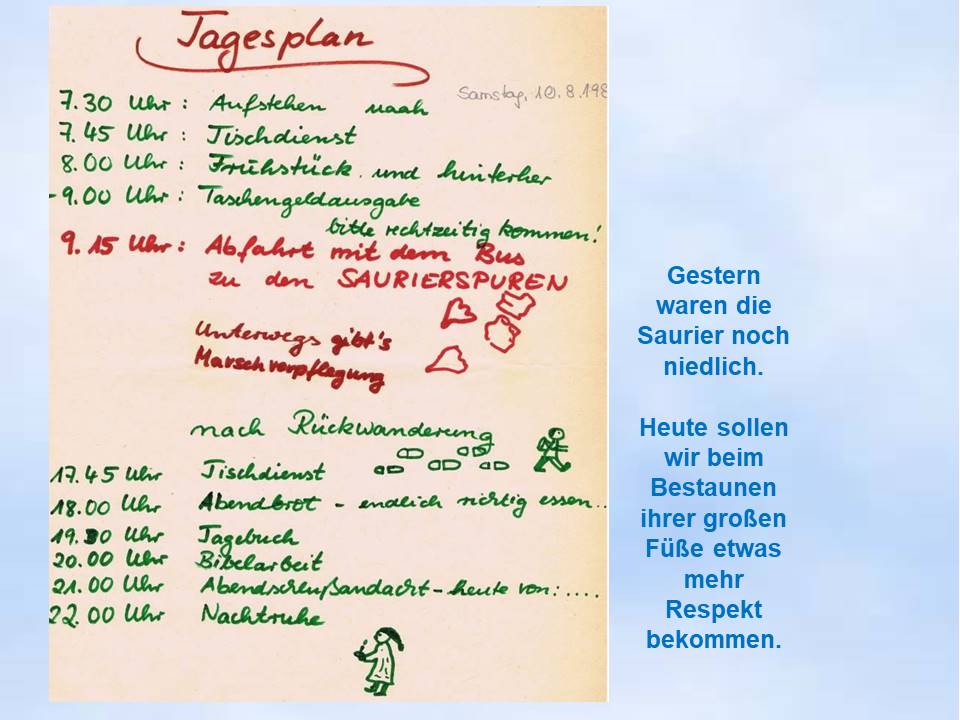 Tagesplan
Samstag, 10.8.198
7.30 Uhr : Aufstehen uaah
7.45 Uhr : Tischdienst
8.00 Uhr : Frühstück und hinterher
- 9.00 Uhr : Taschengeldausgabe
bitte rechtzeitig kommen!
9.15 Uhr : Abfahrt mit dem Bus
zu den SAURIERSPUREN
Unterwegs gibt's
Marschverpflegung
nach Rückwanderung
17.45 Uhr Tischdienst
18.00 Uhr Abendbrot - endlich richtig essen...
19.30 Uhr Tagebuch
20.00 Uhr Bibelarbeit
21.00 Uhr Abendschlußandacht - heute von:....
22.00 Uhr Nachtruhe
Gestern
waren die
Saurier noch
niedlich.
Heute sollen
wir beim
Bestaunen
ihrer großen
Füße etwas
mehr
Respekt
bekommen.